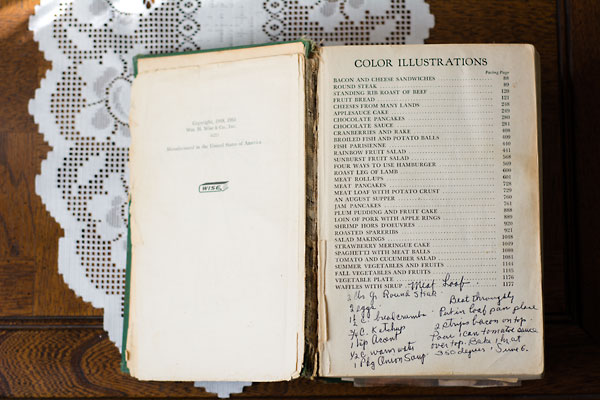 Copyright, 1939, 1951
Wm. H. Wise & Co., Inc.
Manufactured in the United States of America
WISE
COLOR ILLUSTRATIONS
Facing Page
BACON AND CHEESE SANDWICHES 88
ROUND STEAK 89
STANDING RIB ROAST OF BEEF 120
FRUIT BREAD 121
CHEESES FROM MANY LANDS 248
APPLESAUCE CAKE 249
CHOCOLATE PANCAKES 280
CHOCOLATE SAUCE 281
CRANBERRIES AND RAKE 408
BROILED FISH AND POTATO BALLS 409
FISH PARISIENNE 440
RAINBOW FRUIT SALAD 441
SUNBURST FRUIT SALAD 568
FOUR WAYS TO USE HAMBURGER 569
ROAST LEG OF LAMB 600
MEAT ROLL-UPS 601
MEAT PANCAKES 728
MEAT LOAF WITH POTATO CRUST 729
AN AUGUST SUPPER 760
JAM PANCAKES 761
PLUM PUDDING AND FRUIT CAKE 888
LOIN OF PORK WITH APPLE RINGS 889
SHRIMP HORS D'OEUVRES 920
ROASTED SPARERIBS 921
SALAD MAKINGS 1048
STRAWBERRY MERINGUE CAKE 1049
SPAGHETTI WITH MEAT BALLS 1080
TOMATO AND CUCUMBER SALAD 1081
SUMMER VEGETABLES AND FRUITS 1144
FALL VEGETABLES AND FRUITS 1145
VEGETABLE PLATE 1176
WAFFLES WITH SIRUP 1177
Meat Loaf
2 lbs Gr. Round Steak
2 eggs
1½ C. breadcrumbs
¾ C. Ketchup
1 tsp Accent
½ C warm water
1 Pkg Onion Soup
Beat throughly
Put in loaf pan place
2 strips bacon on top.
Pour 1 can tomatoe sauce
over top. Bake 1 hr at
350 degrees. Serve 6.